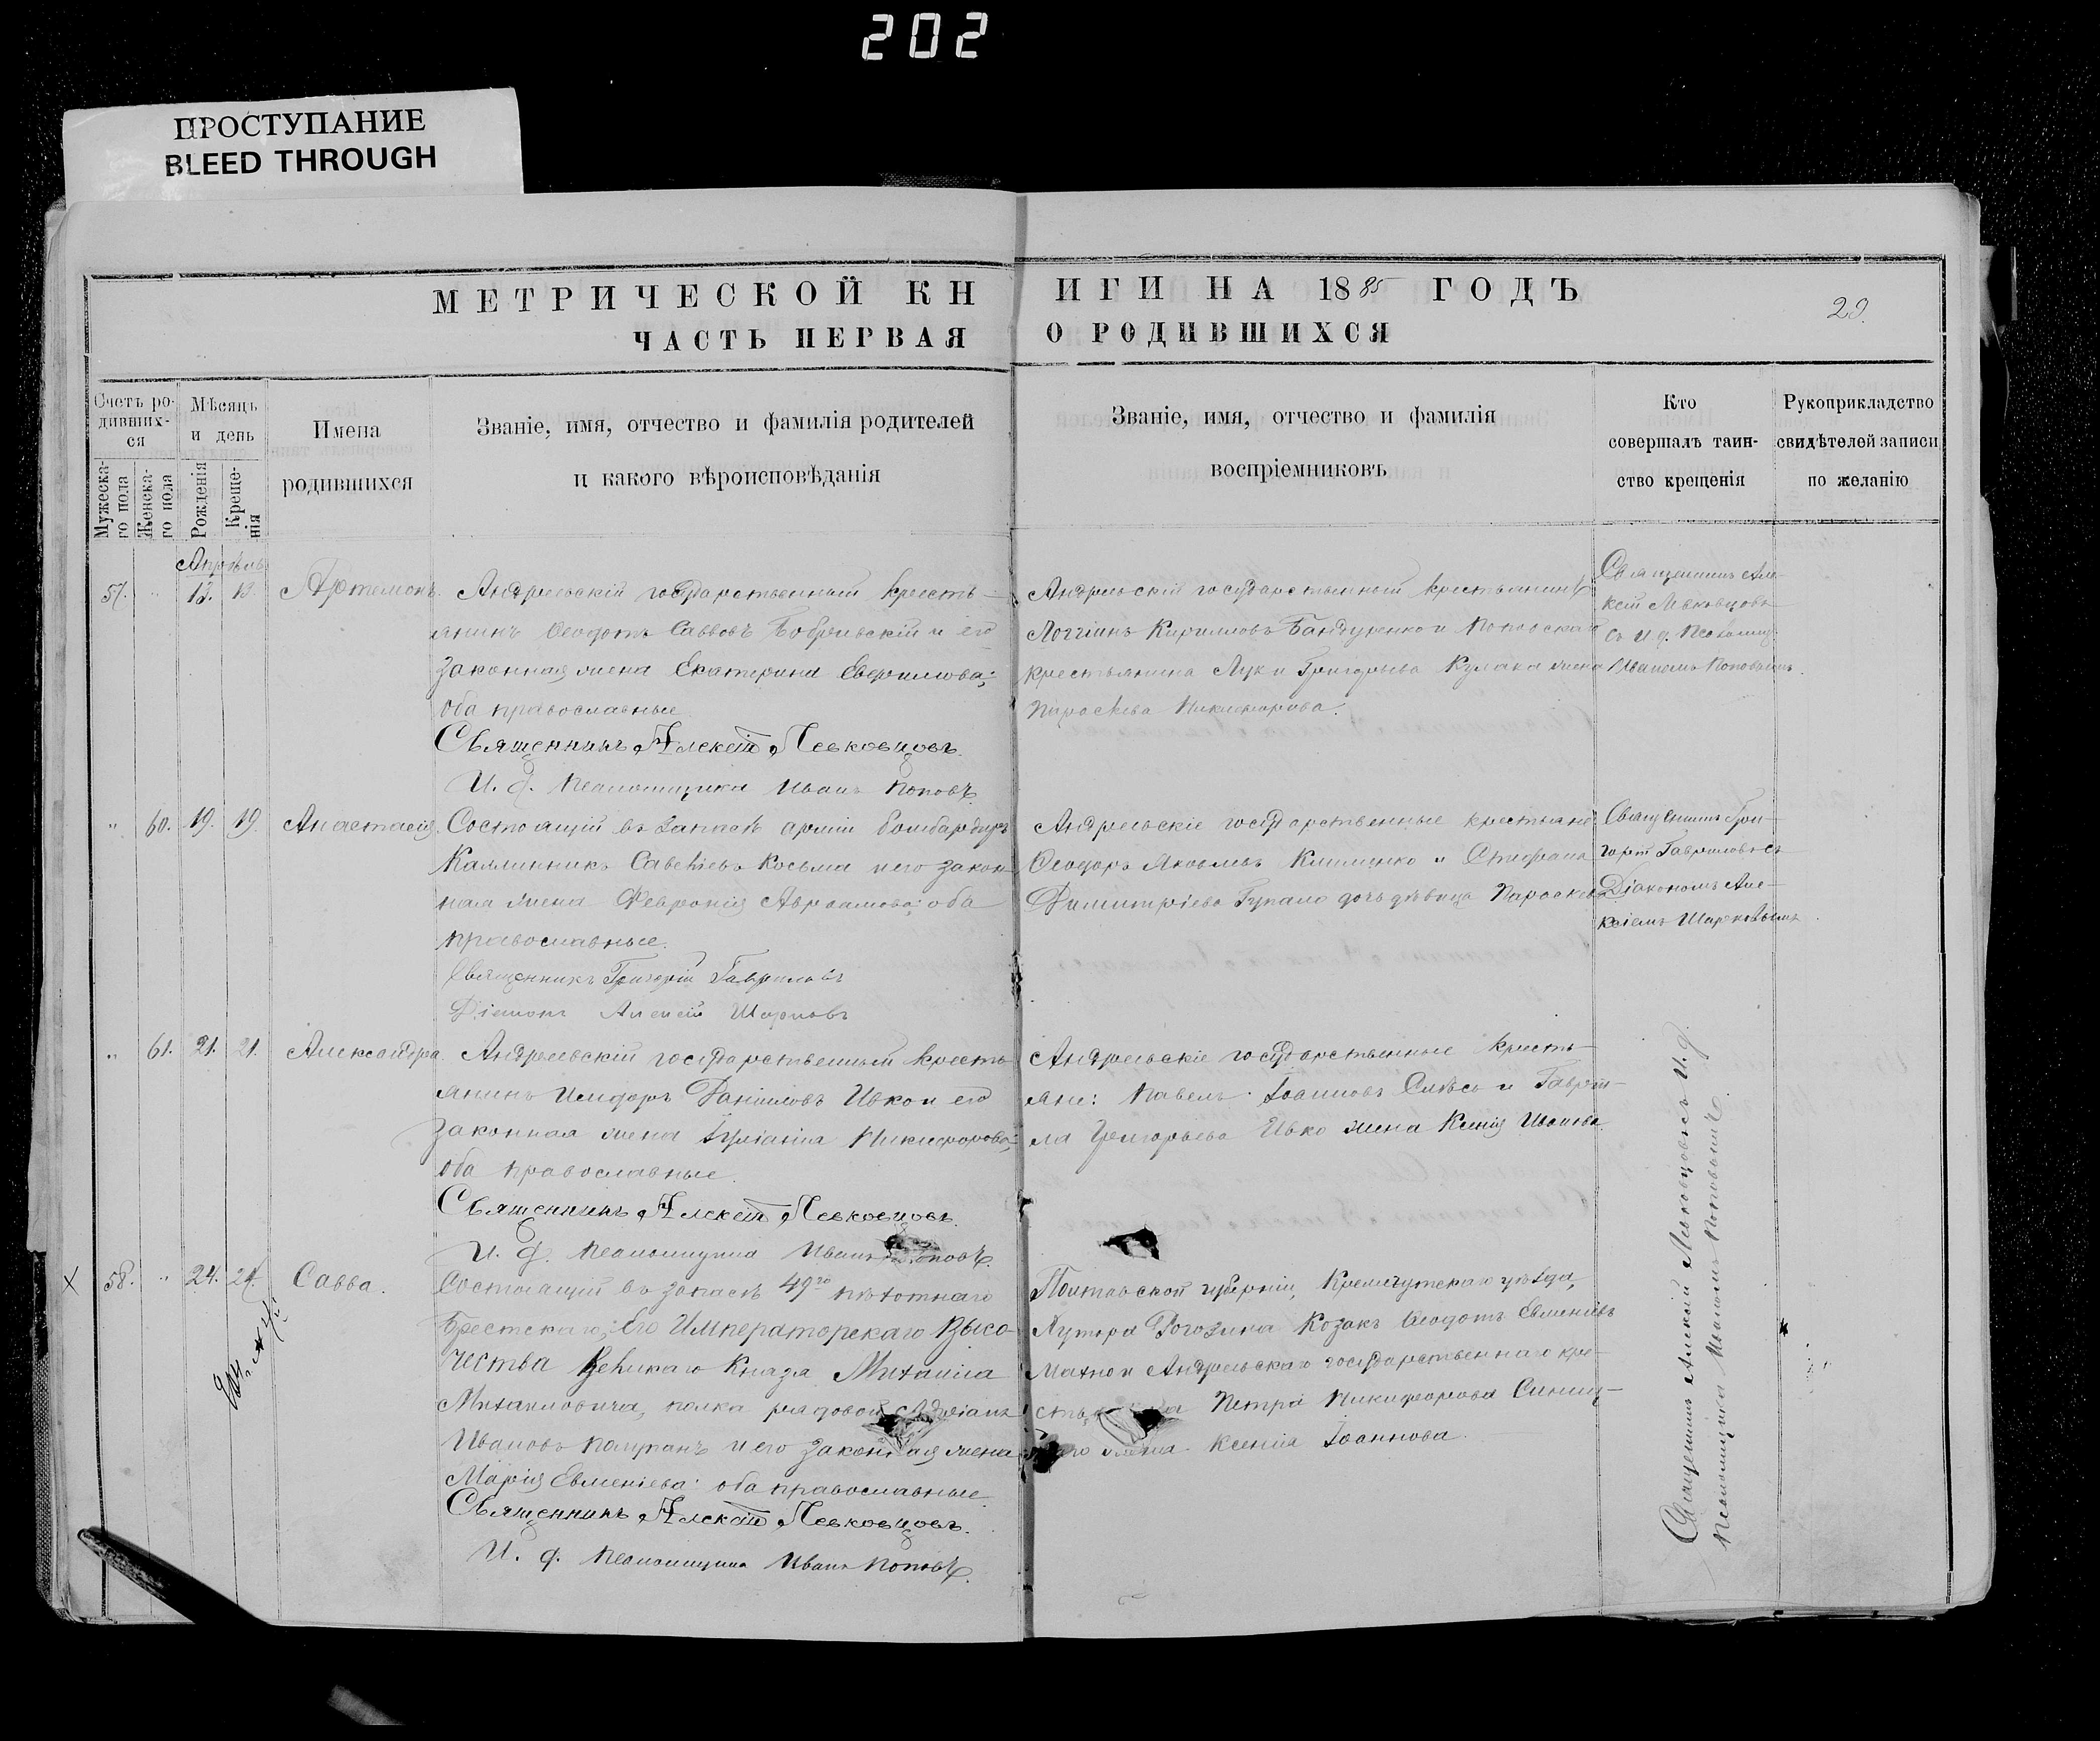 202
ПРОСТУПАНИЕ
BLEED THROUGH
МЕТРИЧЕСКОЙ КНИГИ НА 1885 ГОДЪ
29.
ЧАСТЬ ПЕРВАЯ О РОДИВШИХСЯ
Счетъ ро-
дивших-
ся
Мужеска-
го пола
Женска-
го пола
Мѣсяцъ
и день
Рожденія
Креще-
нія
Имена
родившихся
Званіе, имя, отчество и фамилія родителей
и какого вѣроисповѣданія
Званіе, имя, отчество и фамилія
воспріемниковъ
Кто
совершалъ таин-
ство крещенія
Рукоприкладство
свидѣтелей записи
по желанію
Апрѣль
57. " 13. 13. Артемонъ.
Андреевскій государственный кресть-
янинъ Ѳеодотъ Саввовъ и его
законная жена Екатерина
оба православные.
Священникъ Алексій Левковцовъ.
И. д. Псаломщика Иванъ Поповъ.
Андреевскій государственный крестьянинъ
Логгинъ Кирилловъ Бандуренко и Поповскаго
крестьянина Луки Григорьева Кулака жена
Параскева Никифорова.
Священникъ Але-
ксій Левковцовъ
съ И. д. Псаломщ.
Иваномъ Поповымъ.
" 60. 19. 19. Анастасія.
Состоящій въ запасѣ арміи бомбардиръ
Каллиникъ Савеліевъ Косьма и его закон-
ная жена Февронія Авраамова: оба
православные.
Священникъ Григорій Гавриловъ
Діаконъ Алексій
Андреевскіе государственные крестьяне
Ѳеодоръ Яковлевъ Клименко и Стефана
Димитріева дочь дѣвица Параскева
Священникъ Гри-
горій Гавриловъ съ
Діакономъ Але-
ксіемъ
" 61. 21. 21. Александра.
Андреевскій государственный кресть-
янинъ Исидоръ Даніиловъ Ивко и его
законная жена Іуліанія Никифорова:
оба православные.
Священникъ Алексій Левковцовъ.
И. д. Псаломщика Иванъ Поповъ.
Андреевскіе государственные кресть-
яне: Павелъ Іоанновъ и Гаврі-
ла Григорьева Ивко жена Ксенія Иванова.
Х 58. " 24. 24. Савва.
Состоящій въ запасѣ 49го пѣхотнаго
Брестскаго, Его Императорскаго Высо-
чества Великаго Князя Михаила
Михаиловича, полка рядовой Адріанъ
Ивановъ и его законная жена
Марія Евменіева: оба православные.
Священникъ Алексій Левковцовъ.
И. д. Псаломщика Иванъ Поповъ.
Полтавской губерніи, Кременчугскаго уѣзда,
Хутора Рогозина Козакъ Ѳеодотъ Евменіевъ
Махно и Андреевскаго государственнаго кре-
Петра Никифорова
жена Ксенія Іоаннова.
Священникъ Алексій Левковцовъ съ И. д.
Псаломщика Иваномъ Поповымъ.